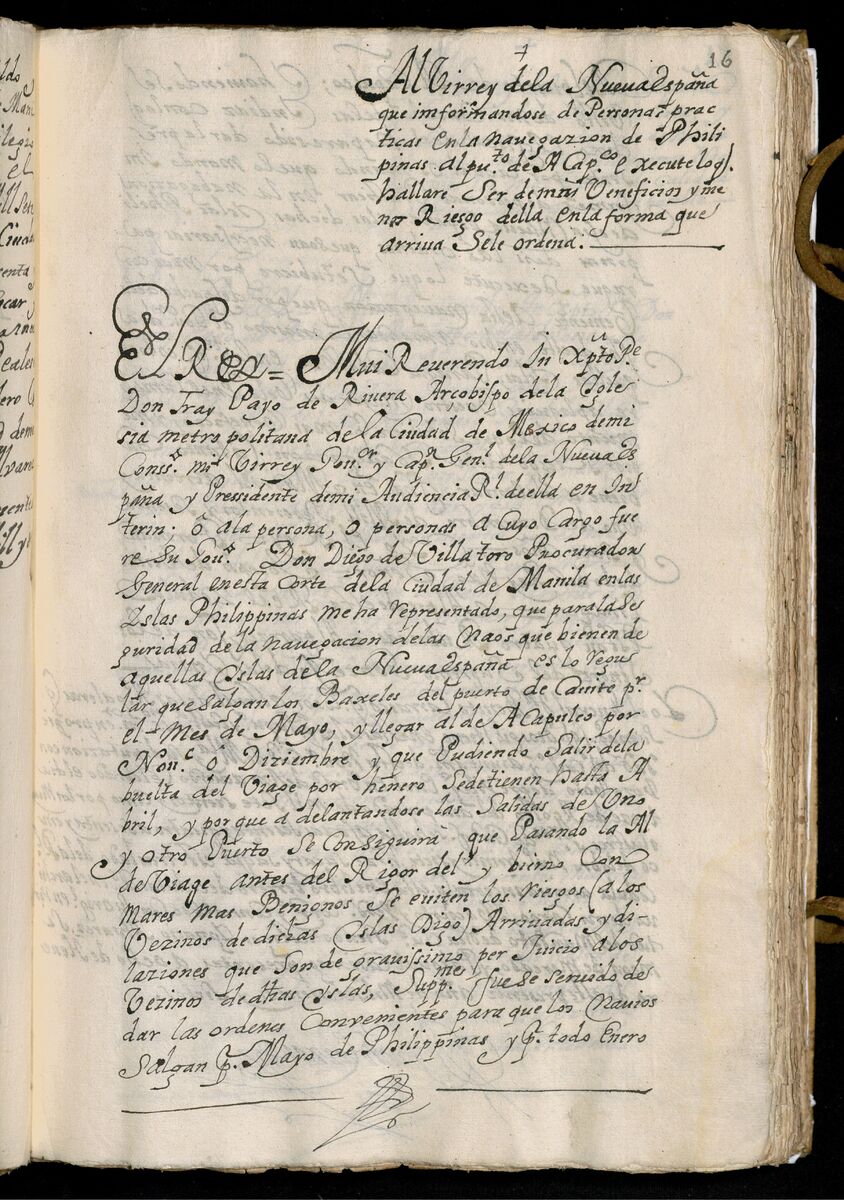 16
Al Virrey dela Nueva España
que imformandose de Personas prac
ticas en la navegazion de Phili
pinas al pu.to de A Cap.co execute lo q.
hallare Ser de mas Veneficio y me
nor Riesgo della en la forma que
arriva Sele ordena.
El Rey = Mui Reverendo In xpto P.e
Don fray Payo de Rivera Arçobispo dela Igle
sia metropolitana de la Ciudad de Mexico de mi
Conss.o mi Virrey Gou.or y Cap.n Gen.l dela Nueva Es
paña y Pressidente demi Audiencia R.l de ella en In
terin; ô ala persona, o personas a Cuyo Cargo fue
re Su Gou.o Don Diego de Villatoro Procurador
General en esta Corte dela Ciudad de Manila en las
Islas Philippinas me ha representado, que para la Se
guridad de la navegacion de las Naos que bienen de
aquellas Yslas de la Nueva España es lo regu
lar que salgan los Baxeles del puerto de Cauite p.r
el Mes de Mayo, y llegar al de A Capulco por
Nou.e ô Diziembre y que Pudiendo Salir de la
buelta del Viage por henero se detienen hasta A
bril, y por que a delantandose las Salidas de Uno
y otro Puerto se Conseguira que Pasando la Al
de Viage antes del Rigor del ybierno Con
mares mas Benignos se eviten los riesgos (a los
Vezinos de dichas Islas Digo) Arrivadas y di-
laziones que son de gravissimo per Juicio a los
Vezinos de dhas Yslas, Supp.me fuese servido de
dar las ordenes Convenientes para que los Navios
Salgan p. Mayo de Philippinas y p. todo Enero